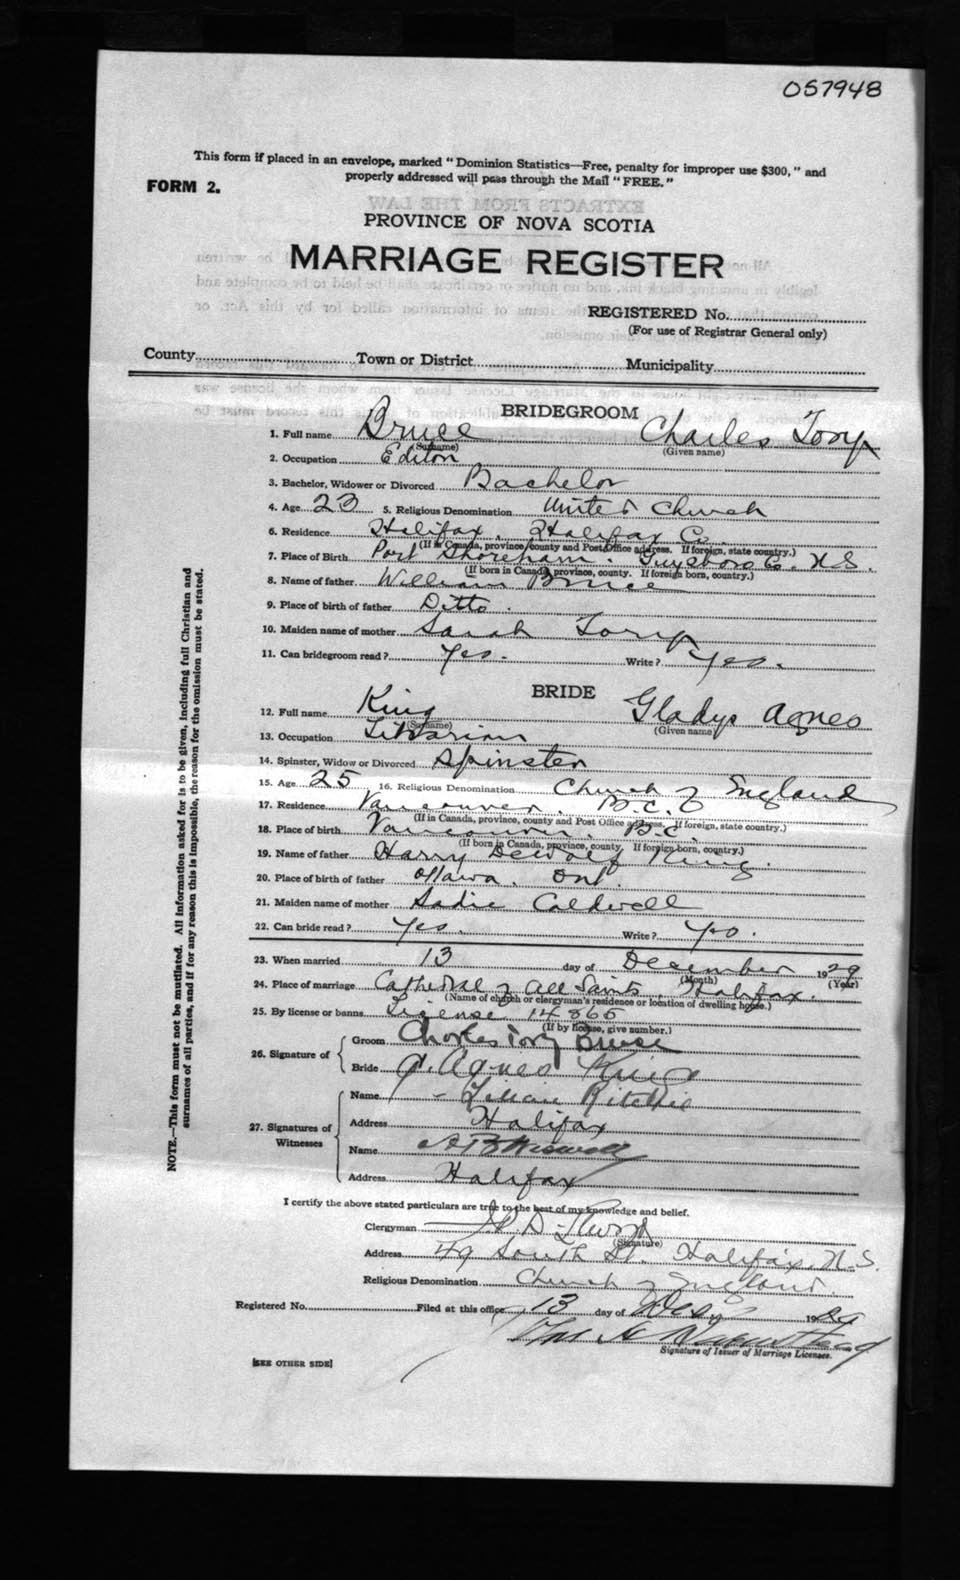 057948
This form if placed in an envelope, marked "Dominion Statistics—Free, penalty for improper use $300," and
properly addressed will pass through the Mail "FREE."
FORM 2.
EXTRACTS FROM THE LAW
PROVINCE OF NOVA SCOTIA
MARRIAGE REGISTER
REGISTERED No.
(For use of Registrar General only)
County Town or District Municipality
BRIDEGROOM
1. Full name Bruce Charles Tory
(Surname) (Given name)
2. Occupation Editor
3. Bachelor, Widower or Divorced Bachelor
4. Age 23 5. Religious Denomination United Church
6. Residence Halifax, Halifax Co.
(If in Canada, province, county and Post Office address. If foreign, state country.)
7. Place of Birth Port Shoreham Guysboro Co. N.S.
(If born in Canada, province, county. If foreign born, country.)
8. Name of father William Bruce
9. Place of birth of father Ditto.
10. Maiden name of mother Sarah Tory
11. Can bridegroom read? Yes. Write? Yes.
BRIDE
12. Full name King Gladys Agnes
(Surname) (Given name)
13. Occupation Librarian
14. Spinster, Widow or Divorced Spinster
15. Age 25 16. Religious Denomination Church of England
17. Residence Vancouver. B.C.
(If in Canada, province, county and Post Office address. If foreign, state country.)
18. Place of birth Vancouver. B.C.
(If born in Canada, province, county. If foreign born, country.)
19. Name of father Harry DeWolf King.
20. Place of birth of father Ottawa. Ont.
21. Maiden name of mother Sadie Caldwell
22. Can bride read? Yes. Write? Yes.
23. When married 13 day of December 1929
(Month) (Year)
24. Place of marriage Cathedral of All Saints, Halifax.
(Name of church or clergyman's residence or location of dwelling house.)
25. By license or banns License 14866
(If by license, give number.)
26. Signature of Groom Charles Tory Bruce
Bride Agnes King
27. Signatures of Witnesses Name Lilian Ritchie
Address Halifax
Name
Address Halifax
I certify the above stated particulars are true to the best of my knowledge and belief.
Clergyman
(Signature)
Address 49 South St. Halifax. N.S.
Religious Denomination Church of England.
Registered No. Filed at this office 13 day of Dec 1929
Signature of Issuer of Marriage Licenses.
[SEE OTHER SIDE]
NOTE.—This form must not be mutilated. All information asked for is to be given, including full Christian and
surnames of all parties, and if for any reason this is impossible, the reason for the omission must be stated.